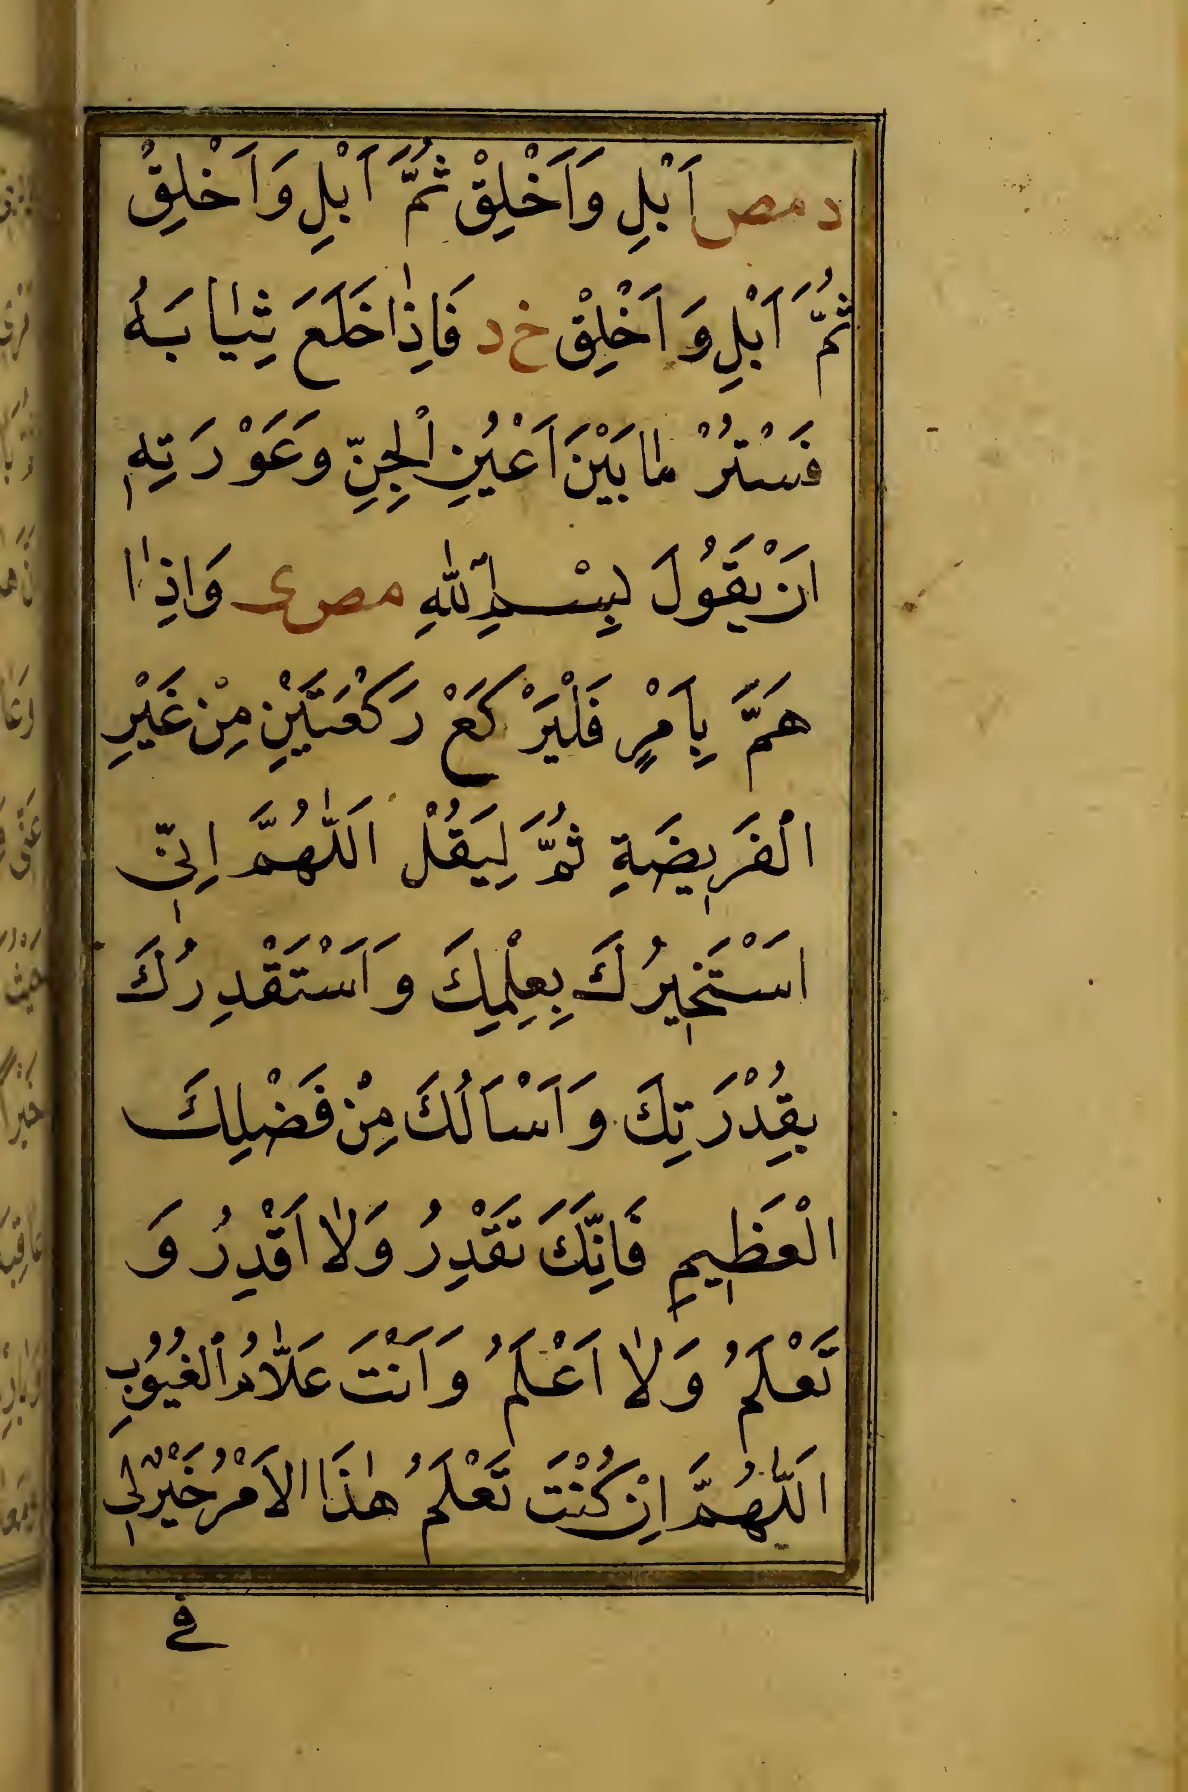 د مص اَبْلِ وَاَخْلِقْ ثُمَّ اَبْلِ وَاَخْلِقْ
ثُمَّ اَبْلِ وَاَخْلِقْ خ د فَاِذٰا خَلَعَ ثِيٰابَهُ
فَسَتْرُ مٰا بَيْنَ اَعْيُنِ الْجِنِّ وَعَوْرَتِهِ
اَنْ يَقُولَ بِسْمِ اللّٰهِ مص ى وَاِذٰا
هَمَّ بِاَمْرٍ فَلْيَرْكَعْ رَكْعَتَيْنِ مِنْ غَيْرِ
الْفَرِيضَةِ ثُمَّ لِيَقُلْ اَللّٰهُمَّ اِنّ۪ي
اَسْتَخ۪يرُكَ بِعِلْمِكَ وَاَسْتَقْدِرُكَ
بِقُدْرَتِكَ وَاَسْاَلُكَ مِنْ فَضْلِكَ
الْعَظ۪يمِ فَاِنَّكَ تَقْدِرُ وَلٰا اَقْدِرُ وَ
تَعْلَمُ وَلٰا اَعْلَمُ وَاَنْتَ عَلّٰامُ الْغُيُوبِ
اَللّٰهُمَّ اِنْ كُنْتَ تَعْلَمُ هٰذَا الاَمْرُ خَيْرٌ ل۪ي
ف۪ي